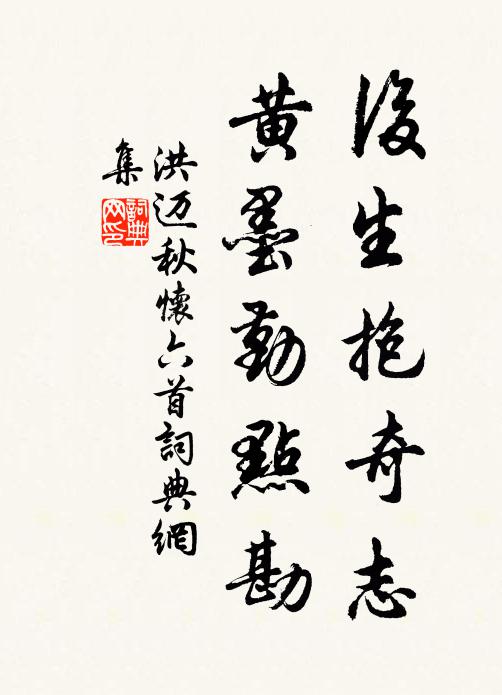 後生抱奇志
黄墨勤點勘
洪迈秋懷六首詞典網
集
詞典
网印